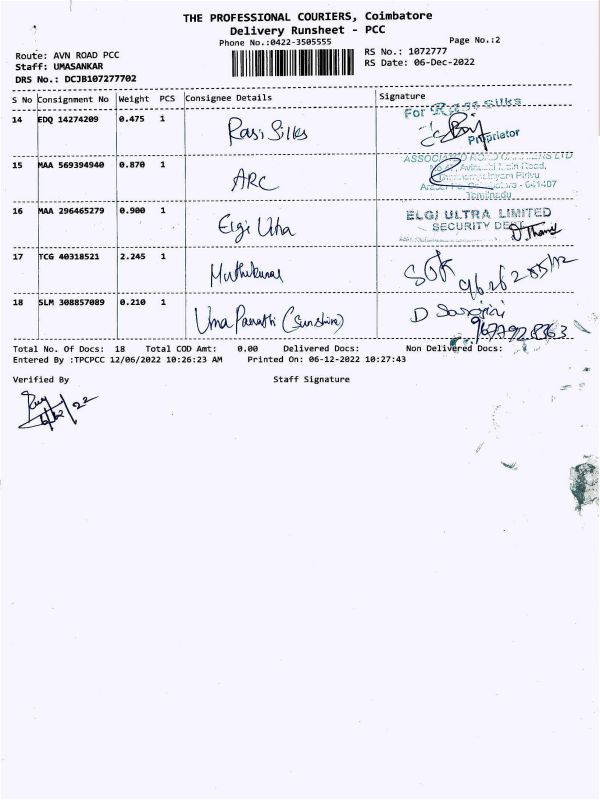 THE PROFESSIONAL COURIERS, Coimbatore
Delivery Runsheet - PCC
Phone No.:0422-3505555
Page No.:2
Route: AVN ROAD PCC
RS No.: 1072777
Staff: UMASANKAR
RS Date: 06-Dec-2022
DRS No.: DCJB107277702
S No Consignment No Weight PCS Consignee Details Signature
14 EDQ 14274209 0.475 1 Rasi Silks
For Rasi Silks
Proprietor
15 MAA 569394940 0.870 1 ARC
16 MAA 296465279 0.900 1 Elgi Ultra
ELGI ULTRA LIMITED
SECURITY DEPT
17 TCG 40318521 2.245 1 Muthukumar
18 SLM 308857089 0.210 1 Uma Parvathi (Sunshine)
Total No. Of Docs: 18 Total COD Amt: 0.00 Delivered Docs: Non Delivered Docs:
Entered By :TPCPCC 12/06/2022 10:26:23 AM Printed On: 06-12-2022 10:27:43
Verified By Staff Signature